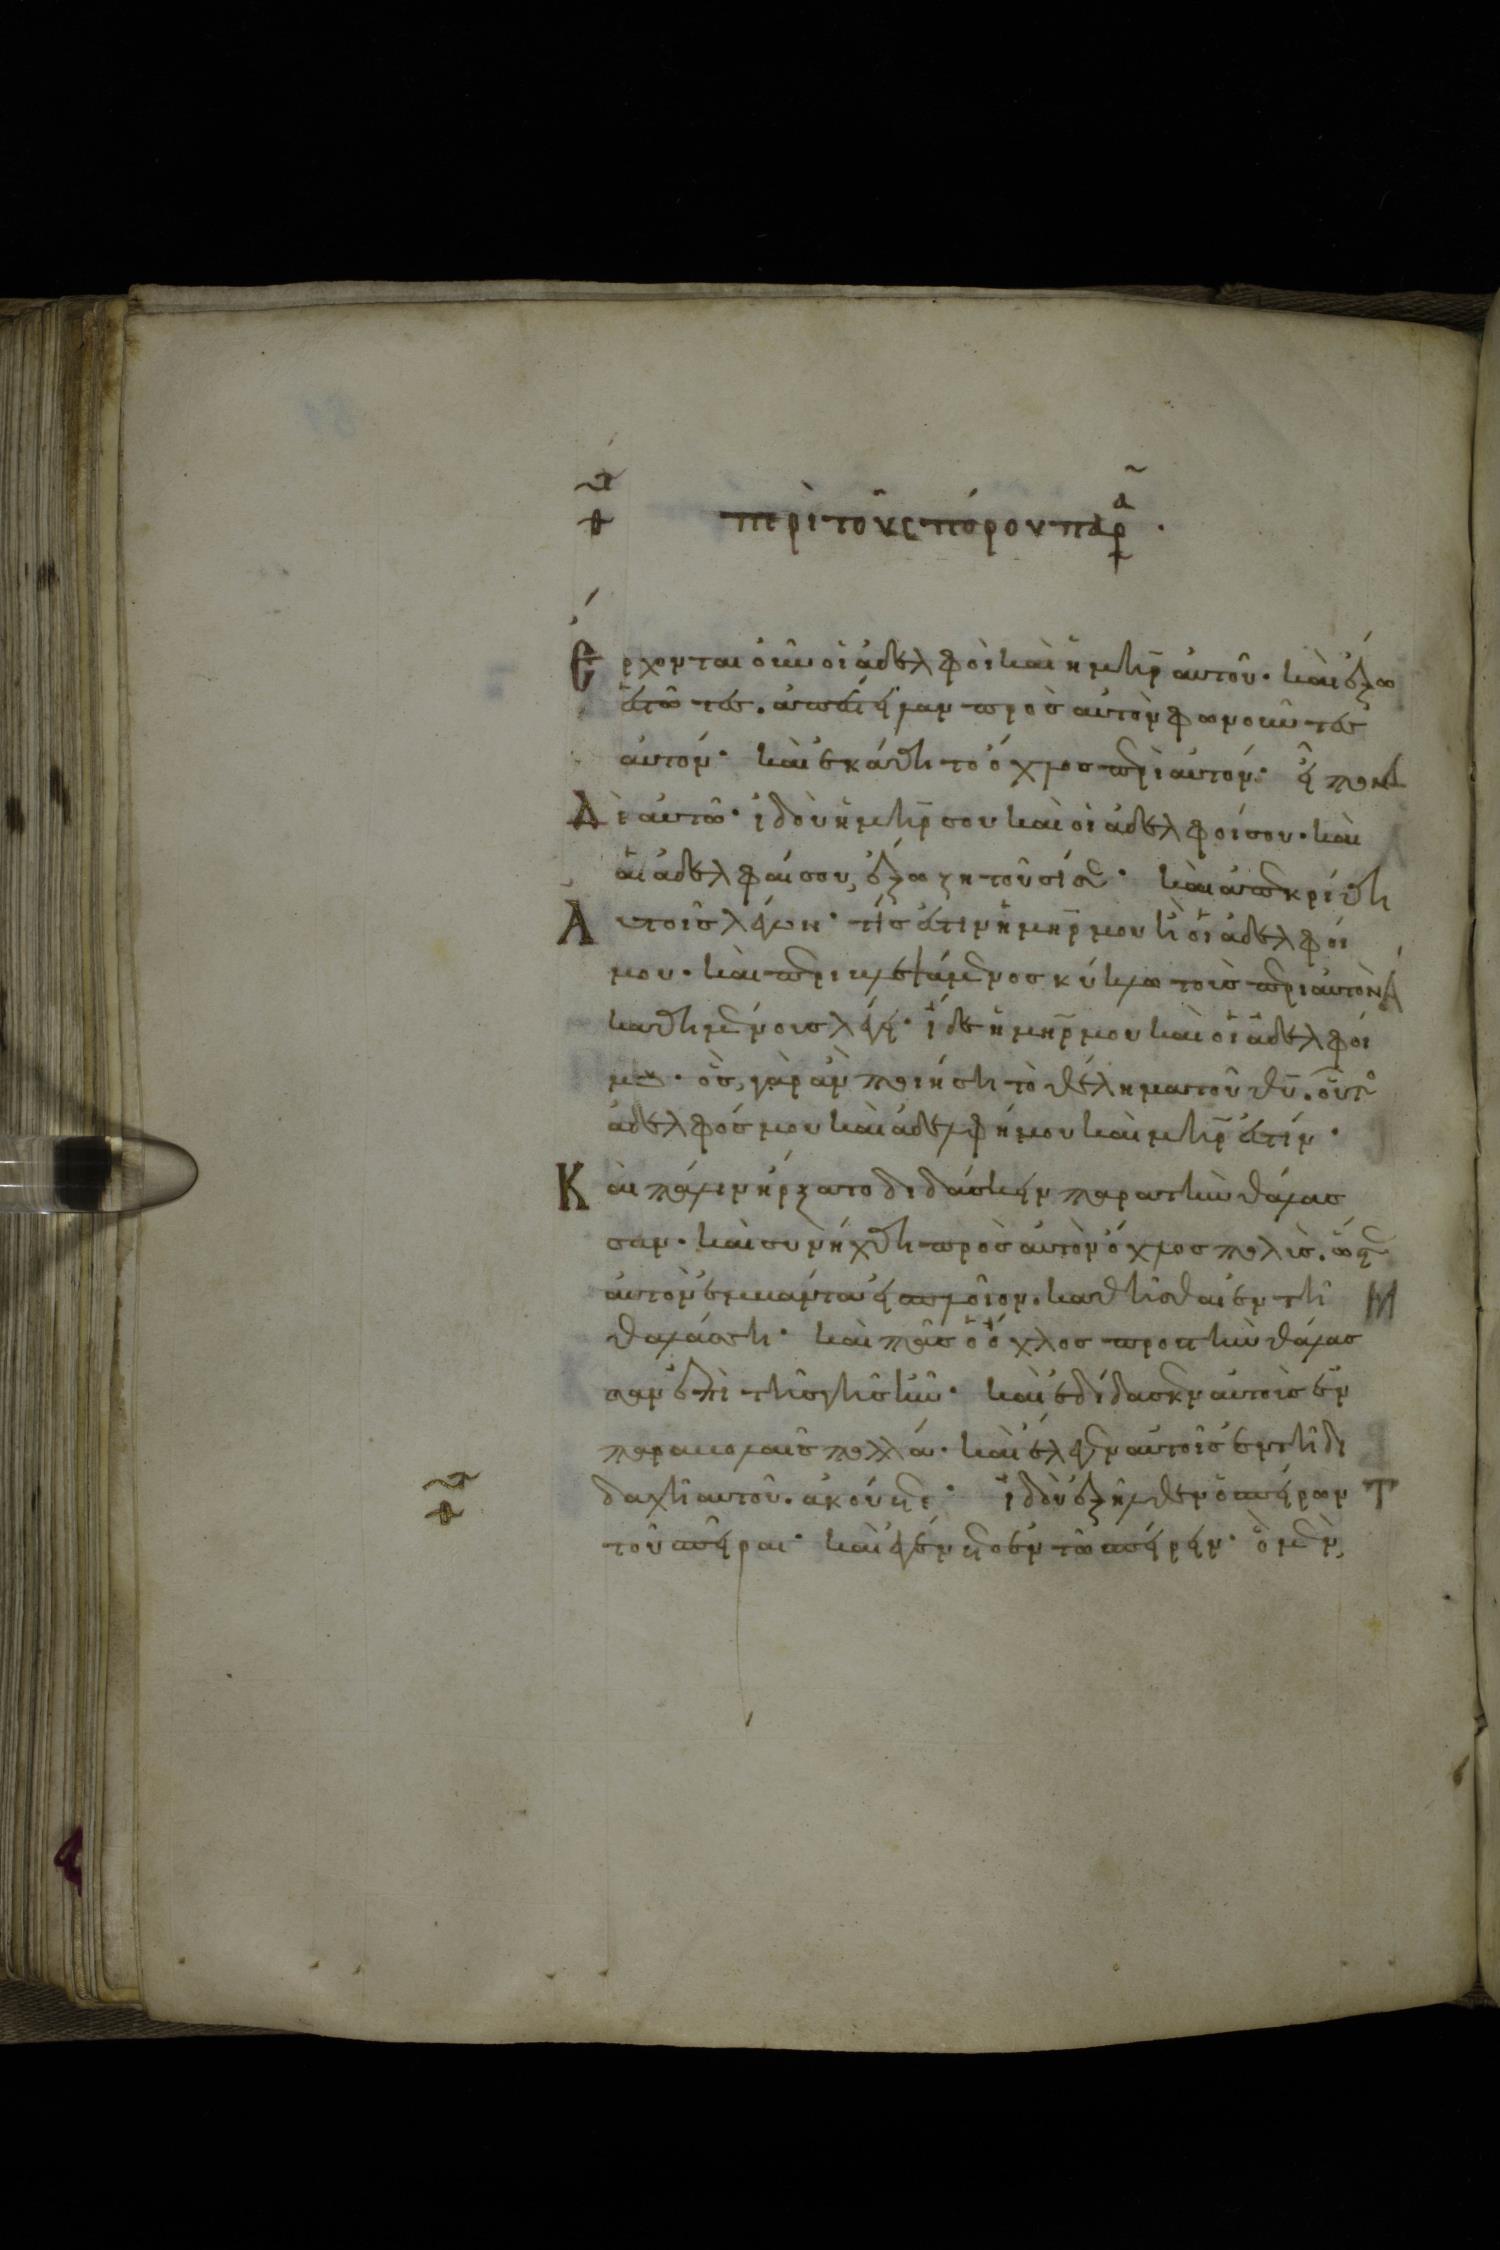 περὶ τοῦ σπόρου παρα
Ἔρχονται οὖν οἱ ἀδελφοὶ καὶ ἡ μηρ αὐτοῦ· καὶ ἔξω
ἑστῶτες. ἀπέστειλαν πρὸς αὐτὸν φωνοῦντες
αὐτόν· καὶ ἐκάθητο ὄχλος περὶ αὐτόν· εἶπον
Δὲ αὐτῶ· ἰδοὺ ἡ μηρ σου καὶ οἱ ἀδελφοί σου· καὶ
αἱ ἀδελφαί σου, ἔξω ζητοῦσί σε· καὶ ἀπεκρίθη
Αὐτοῖς λέγων· τίς ἐστιν ἡ μηρ μου ἢ οἱ ἀδελφοί
μου· καὶ περιβλεψάμενος κύκλω τοὺς περὶ αὐτὸν
καθημένους λέγει· ἴδε ἡ μηρ μου καὶ οἱ ἀδελφοί
μου· ὃς γὰρ ἂν ποιήση τὸ θέλημα τοῦ θυ. οὗτος
ἀδελφός μου καὶ ἀδελφή μου καὶ μηρ ἐστίν·
Καὶ πάλιν ἤρξατο διδάσκειν παρὰ τὴν θάλασ
σαν· καὶ συνήχθη πρὸς αὐτὸν ὄχλος πολὺς. ὥστε
αὐτὸν ἐμβάντα εἰς πλοῖον. καθῆσθαι ἐν τῆ
θαλάσση· καὶ πᾶς ὁ ὄχλος πρὸς τὴν θάλασ
σαν ἐπὶ τῆς γῆς ἦν· καὶ ἐδίδασκεν αὐτοὺς ἐν
παραβολαῖς πολλά· καὶ ἔλεγεν αὐτοῖς ἐν τῆ δι
δαχῆ αὐτοῦ. ἀκούετε· ἰδοὺ ἐξῆλθεν ὁ σπείρων
τοῦ σπεῖραι· καὶ ἐγένετο ἐν τῶ σπείρειν· ὃ μὲν